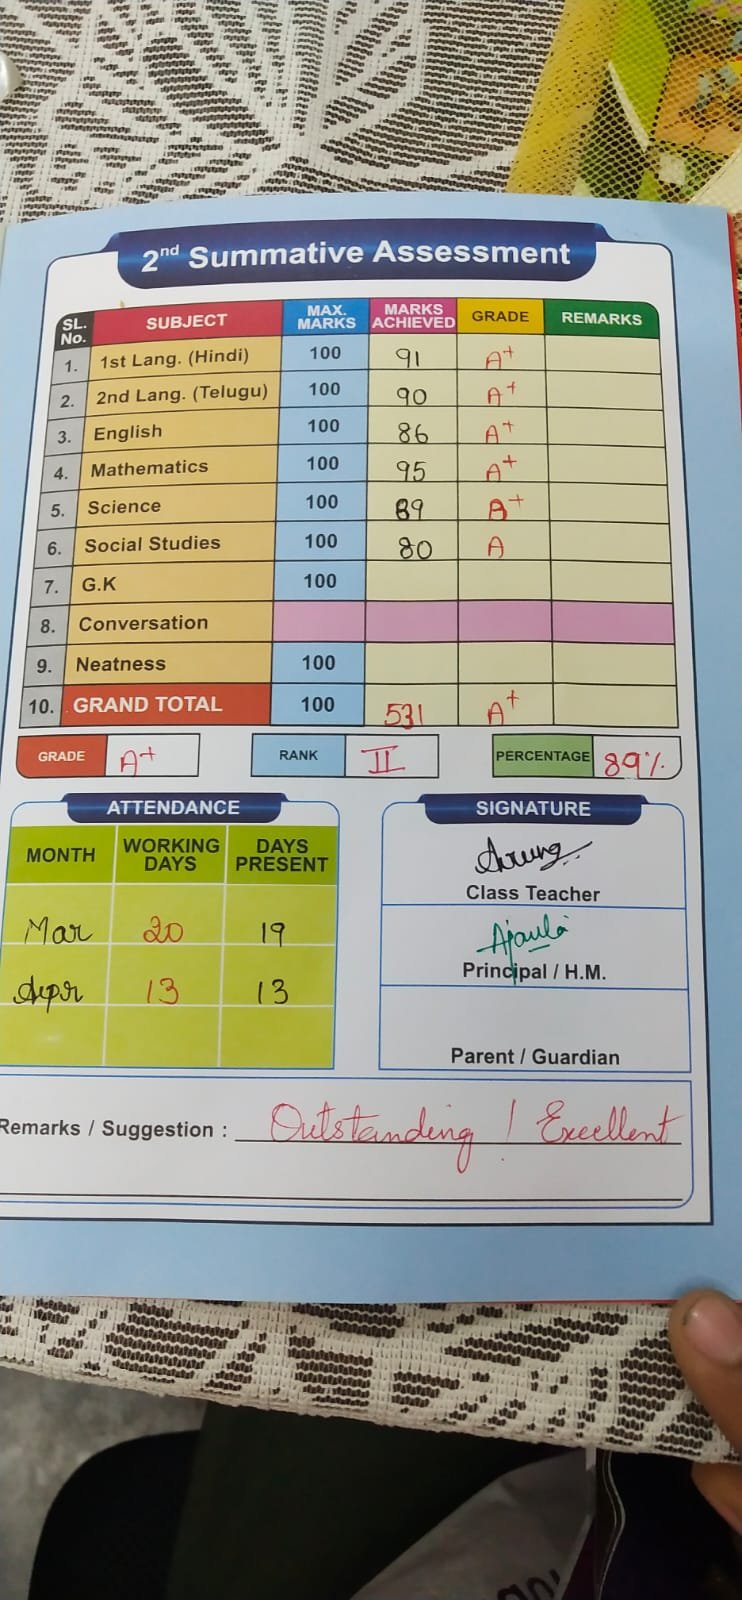 2nd Summative Assessment
SL. No. SUBJECT MAX. MARKS MARKS ACHIEVED GRADE REMARKS
1. 1st Lang. (Hindi) 100 91 A+
2. 2nd Lang. (Telugu) 100 90 A+
3. English 100 86 A+
4. Mathematics 100 95 A+
5. Science 100 89 A+
6. Social Studies 100 80 A
7. G.K 100
8. Conversation
9. Neatness 100
10. GRAND TOTAL 100 531 A+
GRADE A+ RANK II PERCENTAGE 89%
ATTENDANCE
MONTH WORKING DAYS DAYS PRESENT
Mar 20 19
Apr 13 13
SIGNATURE
Class Teacher
Principal / H.M.
Parent / Guardian
Remarks / Suggestion : Outstanding ! Excellent